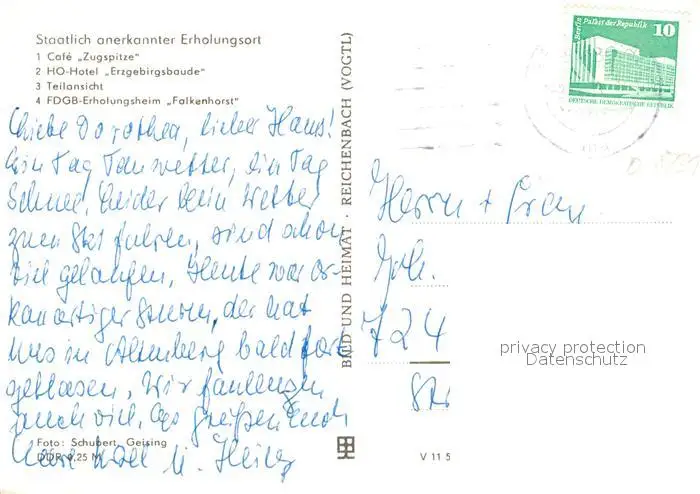 Staatlich anerkannter Erholungsort
1 Café „Zugspitze"
2 HO-Hotel „Erzgebirgsbaude"
3 Teilansicht
4 FDGB-Erholungsheim „Falkenhorst"
Liebe Dorothea, lieber Hans!
Ein Tag Tauwetter, ein Tag
Schnee, leider kein Wetter
zum Ski fahren, sind schon
viel gelaufen, Heute war or-
kanartiger Sturm, der hat
uns in Altenberg bald fort
geblasen, Wir faulenzen
auch viel, Es grüßen Euch
u. Heinz
Foto: Schubert, Geising
DDR 0,25 M
BILD UND HEIMAT · REICHENBACH (VOGTL)
V 11 5
Berlin Palast der Republik
10
DEUTSCHE DEMOKRATISCHE REPUBLIK
Herrn + Frau
Joh.
724
privacy protection
Datenschutz